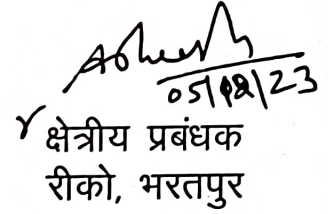 05/12/23
क्षेत्रीय प्रबंधक
रीको, भरतपुर